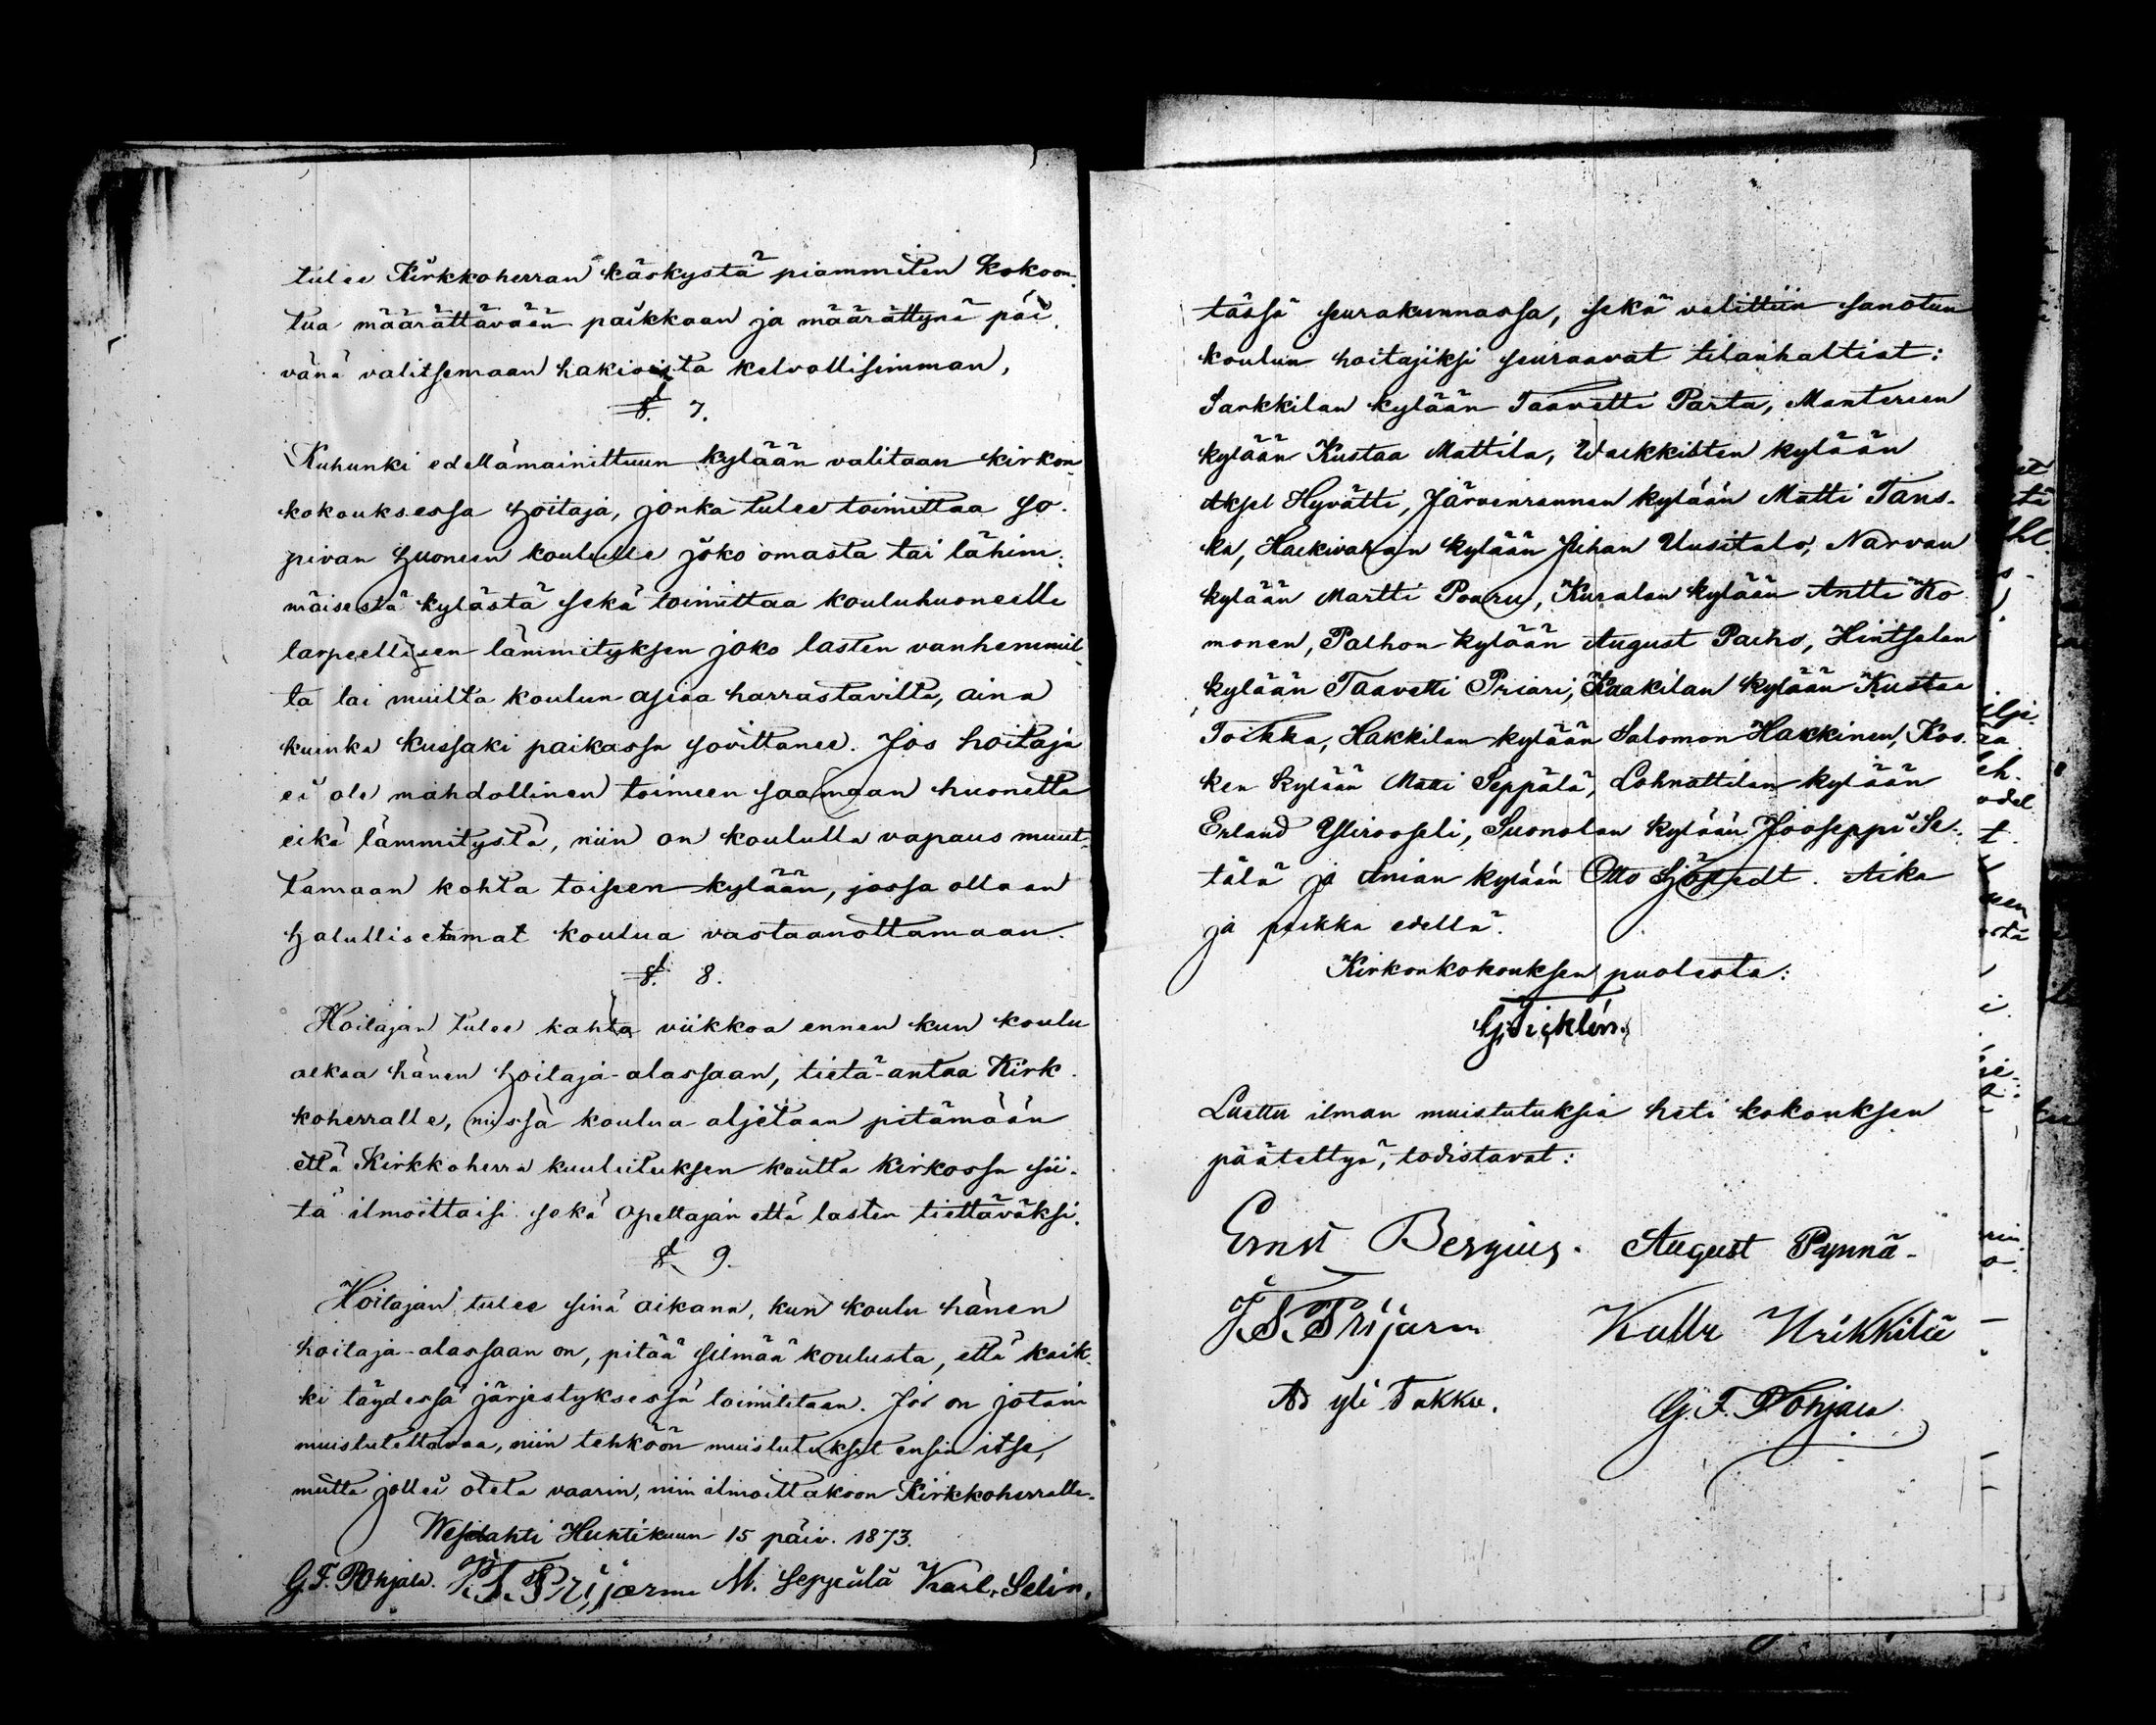 tulee Kirkkoherran käskystä piammiten kokoon-
tua määrättävään paikkaan ja määrättynä päi-
vänä valitsemaan hakioista kelvollisimman,
§. 7.
Kuhunki edellämainittuun kylään valitaan kirkon
kokouksessa hoitaja, jonka tulee toimittaa so-
pivan huoneen koululle joko omasta tai lähim-
mäisestä kylästä sekä toimittaa kouluhuoneelle
tarpeellisen lämmityksen joko lasten vanhemmil-
ta tai muilta koulun asiaa harrastavilta, aina
kuinka kussaki paikassa sovittanee. Jos hoitaja
ei ole mahdollinen toimeen saamaan huonetta
eikä lämmitystä, niin on koululla vapaus muut-
tamaan kohta toiseen kylään, jossa ollaan
halullisemmat koulua vastaanottamaan.
§. 8.
Hoitajan tulee kahta viikkoa ennen kun koulu
alkaa hänen hoitaja-alassaan, tietä-antaa Kirk-
koherralle, missä koulua aljetaan pitämään
että Kirkkoherra kuulutuksen kautta kirkossa sii-
tä ilmoittaisi sekä opettajan että lasten tiettäväksi.
§. 9.
Hoitajan tulee sinä aikana, kun koulu hänen
hoitaja-alassaan on, pitää silmää koulusta, että kaik-
ki täydessä järjestyksessä toimitetaan. Jos on jotain
muistutettavaa, niin tehköön muistutukset ensin itse,
mutta jollei oteta vaarin, niin ilmoittakoon Kirkkoherralle.
Wesilahti Huhtikuun 15 päiv. 1873.
G. F. Pohjala. M. Seppälä Karl Selin.
tässä seurakunnassa, sekä valittiin sanotun
koulun hoitajiksi seuraavat tilanhaltiat:
Sarkkilan kylään Taavetti Parta, Mantereen
kylään Kustaa Mattila, Waikkisten kylään
Aksel Hyvätti, Järvenrannan kylään Matti Tans-
ka, kylään Juhan Uusitalo, Narvan
kylään Martti Paaru, Kuralan kylään Antti Ko
monen, Palhon kylään August Palho, Hintsalan
kylään Taavetti Priari, Kaakilan kylään Kustaa
Toikka, Hakkilan kylään Salomon Hakkinen, Kos-
ken kylään Matti Seppälä, Lohnattilan kylään
Erland Ylirooseli, Suonolan kylään Jooseppi Se-
tälä ja Anian kylään Otto Sjöstedt. Aika
ja paikka edellä.
Kirkonkokouksen puolesta:
Luettu ilman muistutuksia heti kokouksen
päätettyä, todistavat:
Ernst Bergius. August Pynnä-
Kalle
Ad yli Takku.
G. F. Pohjala